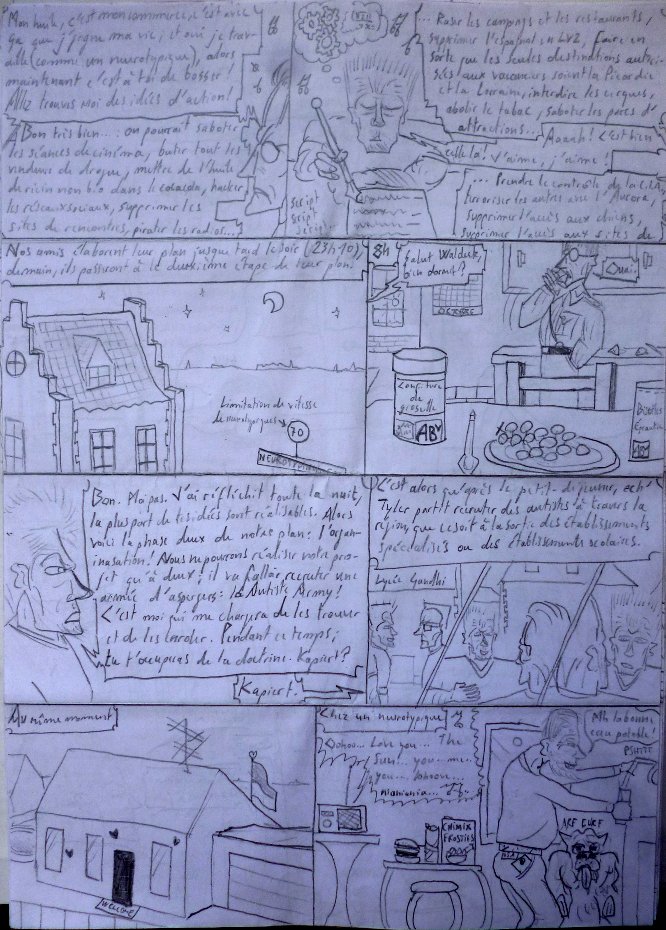 Mon huile, c'est mon commerce, c'est avec
ça que j'gagne ma vie; et oui je tra-
vaille (comme un neurotypique), alors
maintenant c'est à toi de bosser!
Allez trouves moi des idées d'action!
Bon très bien... : on pourrait saboter
les séances de cinéma, buter tout les
vendeurs de drogue, mettre de l'huile
de ricin non bio dans le cocacola, hacker
les réseaux sociaux, supprimer les
sites de rencontres, pirater les radios...
... Raser les campings et les restaurants,
supprimer l'espagnol en LV2, faire en
sorte que les seules destinations autori-
sées aux vacanciers soient la Picardie
et la Lorraine, interdire les cirques,
abolir le tabac, saboter les parcs d'
attractions...
Aaaah! C'est bien
celle là! J'aime, j'aime!
... Prendre le contrôle de la
terroriser les autres avec l'Aurora,
supprimer l'accès aux chiens,
supprimer l'accès aux sites de
script
script
script
Nos amis élaborent leur plan jusque tard le soir (23h40),
demain, ils passeront à la deuxième étape de leur plan.
Limitation de vitesse
de neurotypiques
70
8h
Salut Walduck,
bien dormit?
Ouai.
OCTOBRE
Confiture
de
groseille
ABV
Biscottes
Bon. Moi pas. J'ai réfléchit toute la nuit,
la plus part de tes idées sont réalisables. Alors
voici la phase deux de notre plan: l'organ-
inasation! Nous ne pourrons réaliser notre pro-
jet qu'à deux; il va falloir recruter une
armée d'aspergers: la Autiste Army!
C'est moi qui me chargera de les trouver
et de les enroler. Pendant ce temps,
tu t'occuperas de la doctrine. Kapiert?
Kapiert.
C'est alors qu'après le petit-déjeuner, ech'
Tyler partit recruter des autistes à travers la
région, que ce soit à la sortie des établissements
spécialisés ou des établissements scolaires.
Lycée Gandhi
Au même moment
WELCOME
Chez un neurotypique
Oohoo... Love you... The
Sun... you... me...
you... oohoove...
niania...
CHIMIX
FROSTIES
Ahh la bonne
eau potable!
PSHITT
ARF OUEF